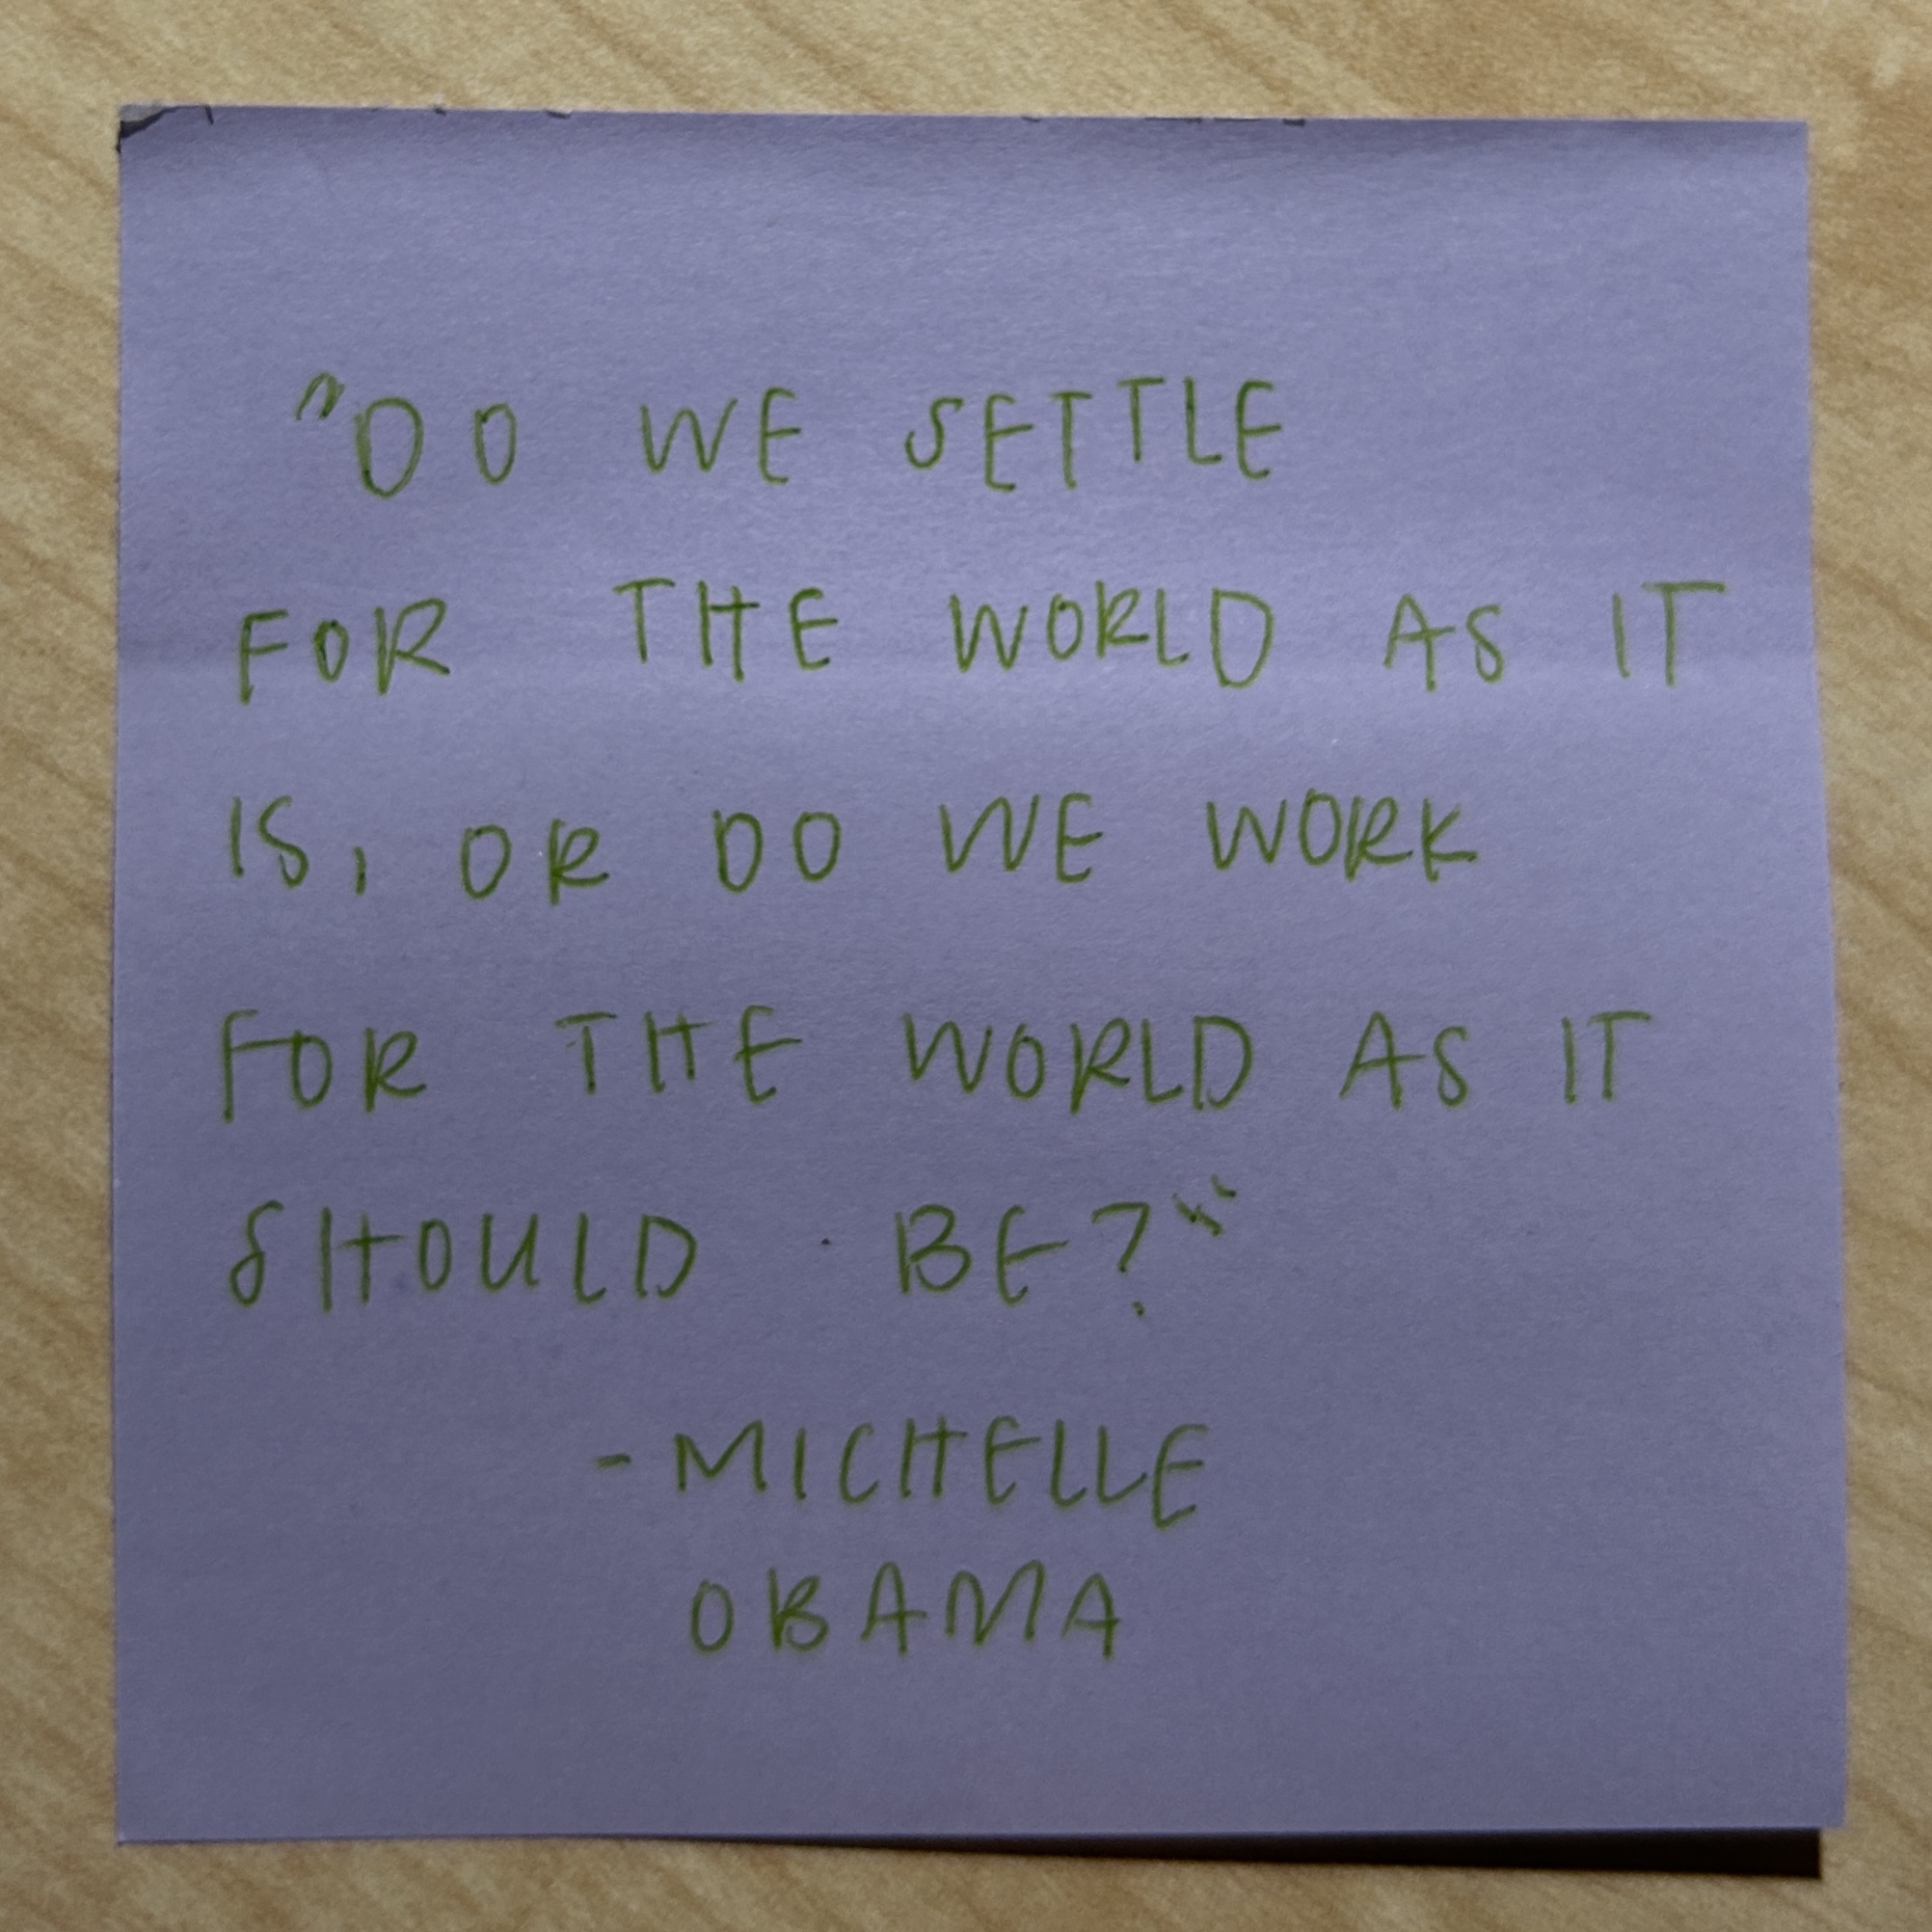 "DO WE SETTLE
FOR THE WORLD AS IT
IS, OR DO WE WORK
FOR THE WORLD AS IT
SHOULD BE?"
- MICHELLE
OBAMA